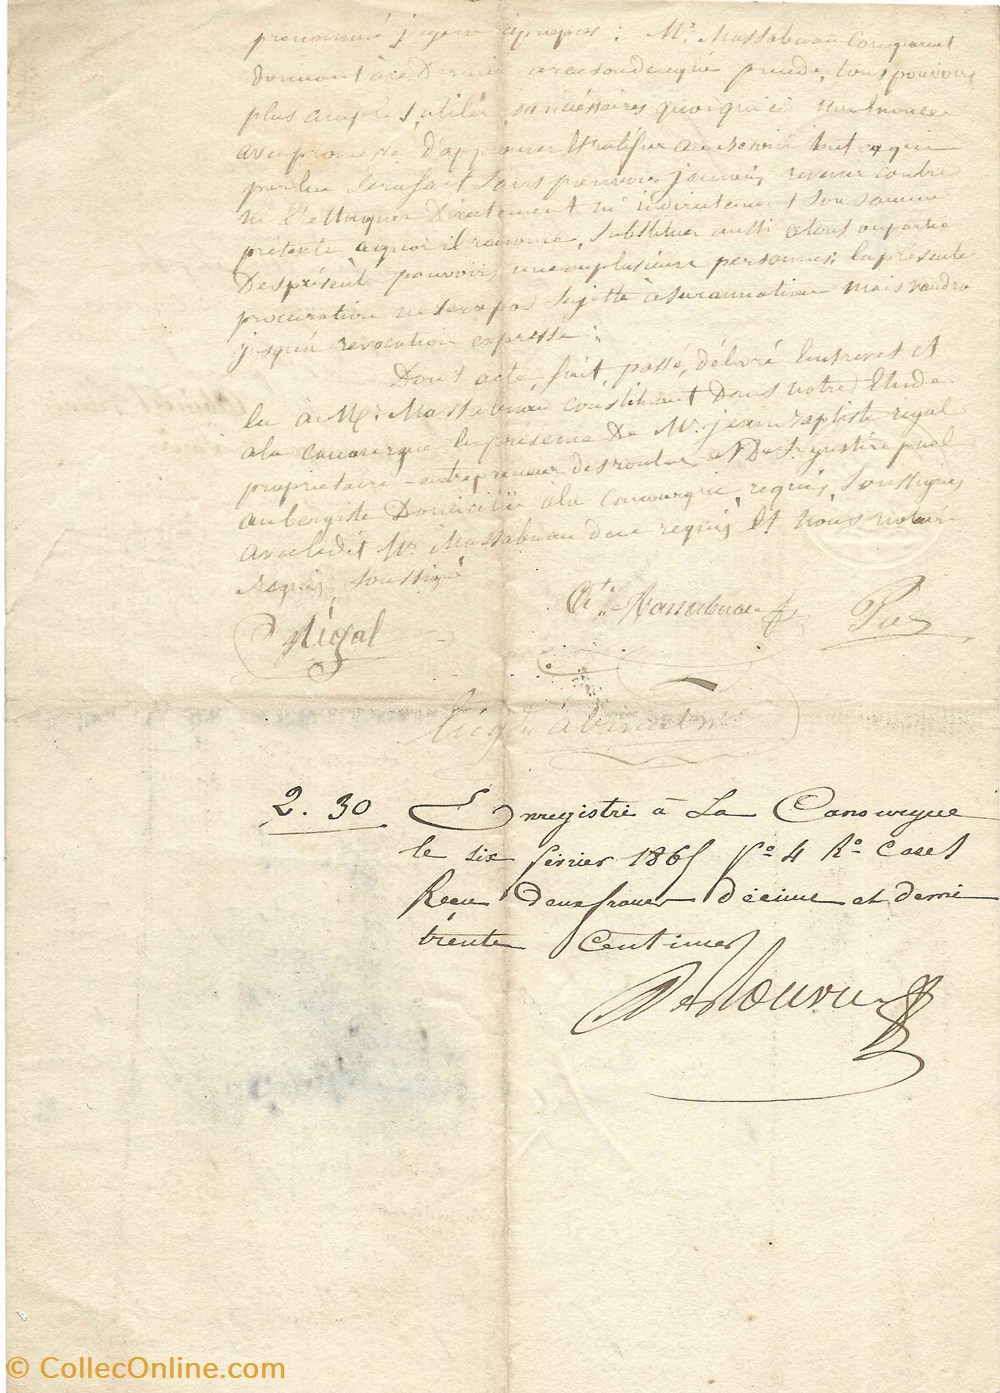 prénommé jugera à propos : Mr. Massabuau comparant
donnant à ce dernier prude, tous pouvoirs
plus amples, utiles nécessaires quoique ici non énoncés
avec promesse d'approuver et ratifier au besoin tout ce qui
par lui sera fait sans pouvoir jamais revenir contre
ni l'attaquer directement ni indirectement sous aucun
prétexte a quoi il renonce, substituer aussi a tous ou partie
Des présents pouvoirs une ou plusieurs personnes; la présente
procuration ne sera pas sujette à surannation mais vaudra
jusqu'à revocation expresse :
Dont acte, fait, passé, délivré en brevet et
lu à Mr. Massabuau constituant Dans notre Etude
à la canourgue en présence De Mr. jean Baptiste rigal
propriétaire - entrepreneur des routes et De Sr
aubergiste Domicilié à la canourgue, requis, Soussignés
avec ledit Mr. Massabuau de ce requis, Et Nous notaire
requis soussigné
Rigal
Ate Massabuau
2. 30 Enregistré à La Canourgue
le six février 1865 fo 4 Ro Case 1
Reçu Deux francs Décime et demi
trente Centimes
© CollecOnline.com